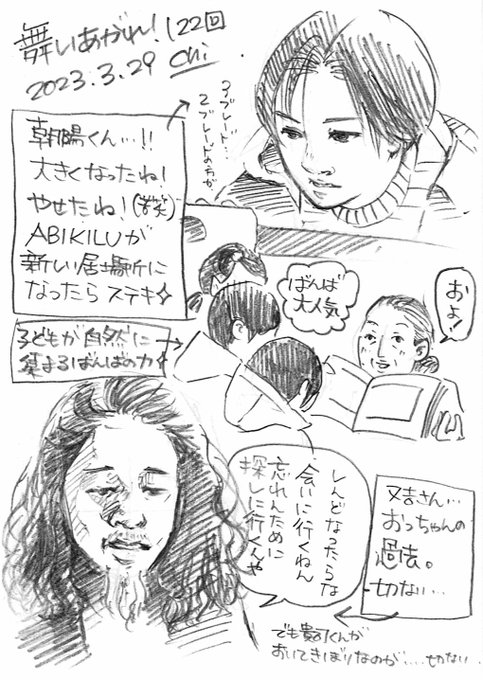 舞いあがれ! 122回
2023.3.29 chi
朝陽くん…!!
大きくなったね!
やせたね!(笑)
ABIKILUが
新しい居場所に
なったらステキ✧
3ブレード…
2ブレードの方が
ばんば
大人気
およ!
子どもが自然に
集まるばんばの力✧
しんどなったらな
会いに行くねん
忘れんために
探しに行くんや
又吉さん…
おっちゃんの
過去。
切ない…
でも貴司くんが
おいてきぼりなのが….切ない…